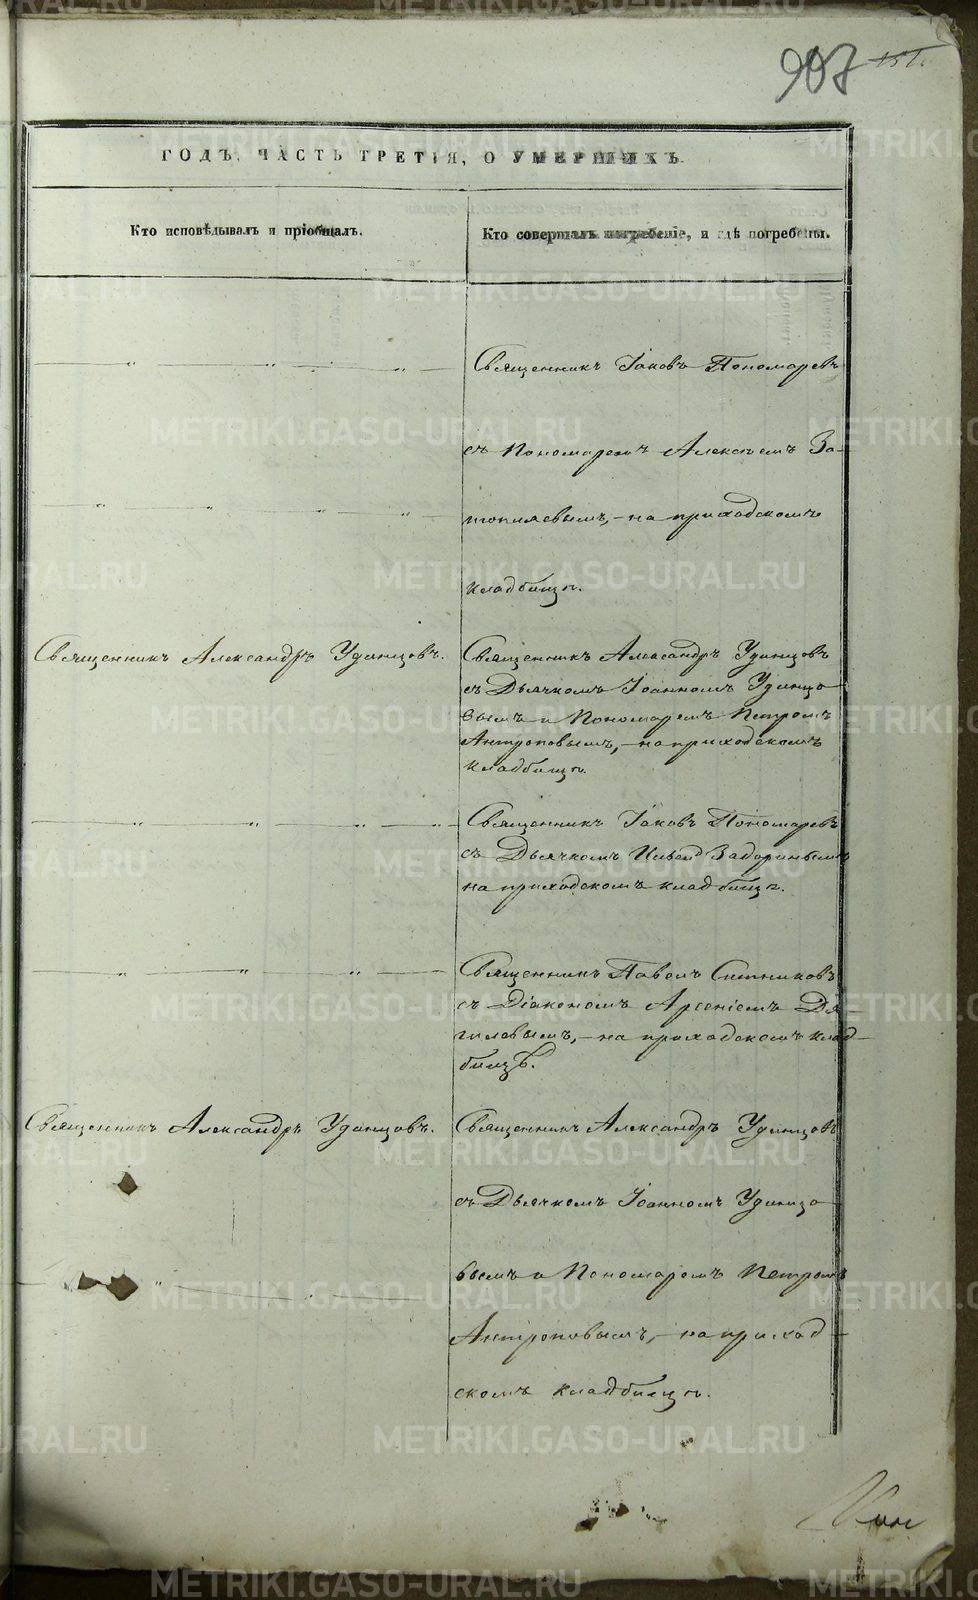 907 151.
ГОДЪ, ЧАСТЬ ТРЕТІЯ, О УМЕРШИХЪ.
Кто исповѣдывалъ и пріобщалъ.
Кто совершалъ погребеніе, и гдѣ погребены.
Священникъ Іаковъ Пономаревъ
съ Пономаремъ Алексѣемъ За-
топляевымъ, - на приходскомъ
кладбищѣ.
Священникъ Александръ Удинцовъ.
Священникъ Александръ Удинцовъ
съ Дьячкомъ Іоанномъ Удинцо
вымъ и Пономаремъ Петромъ
Антроповымъ, - на приходскомъ
кладбищѣ.
Священникъ Іаковъ Пономаревъ
съ Дьячкомъ Задоринымъ
на приходскомъ кладбищѣ.
Священникъ Павелъ Ситниковъ
съ Діакономъ Арсеніемъ Дя-
гилевымъ, - на приходскомъ клад-
бищѣ.
Священникъ Александръ Удинцовъ.
Священникъ Александръ Удинцовъ
съ Дьячкомъ Іоанномъ Удинцо
вымъ и Пономаремъ Петромъ
Антроповымъ, - на приход-
скомъ кладбищѣ.
METRIKI.GASO-URAL.RU